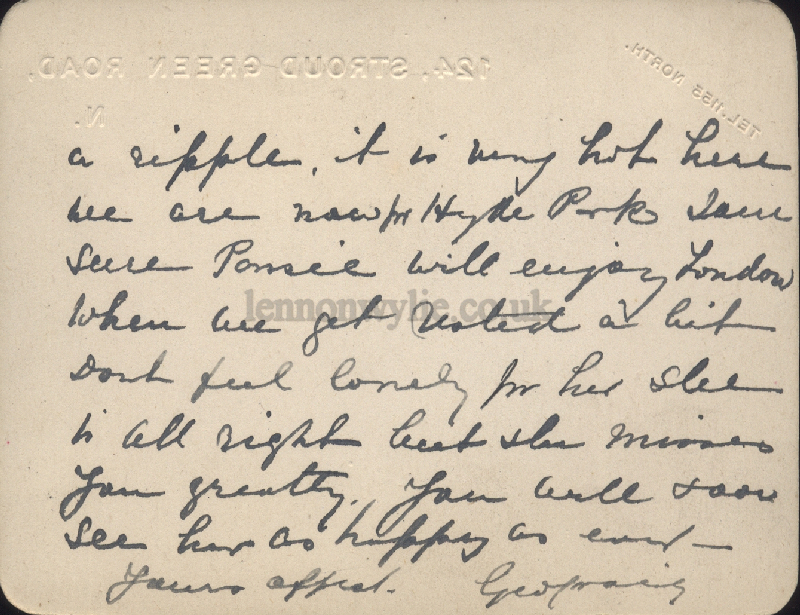 124, STROUD GREEN ROAD,
N.
TEL. 1155 NORTH.
a ripple, it is very hot here
we are now for Hyde Park I am
sure Pansie will enjoy London
when we get rested a bit
Dont feel lonely for her she
is all right but she misses
you greatly. You will soon
see her as happy as ever —
Yours affect.
lennonwylie.co.uk